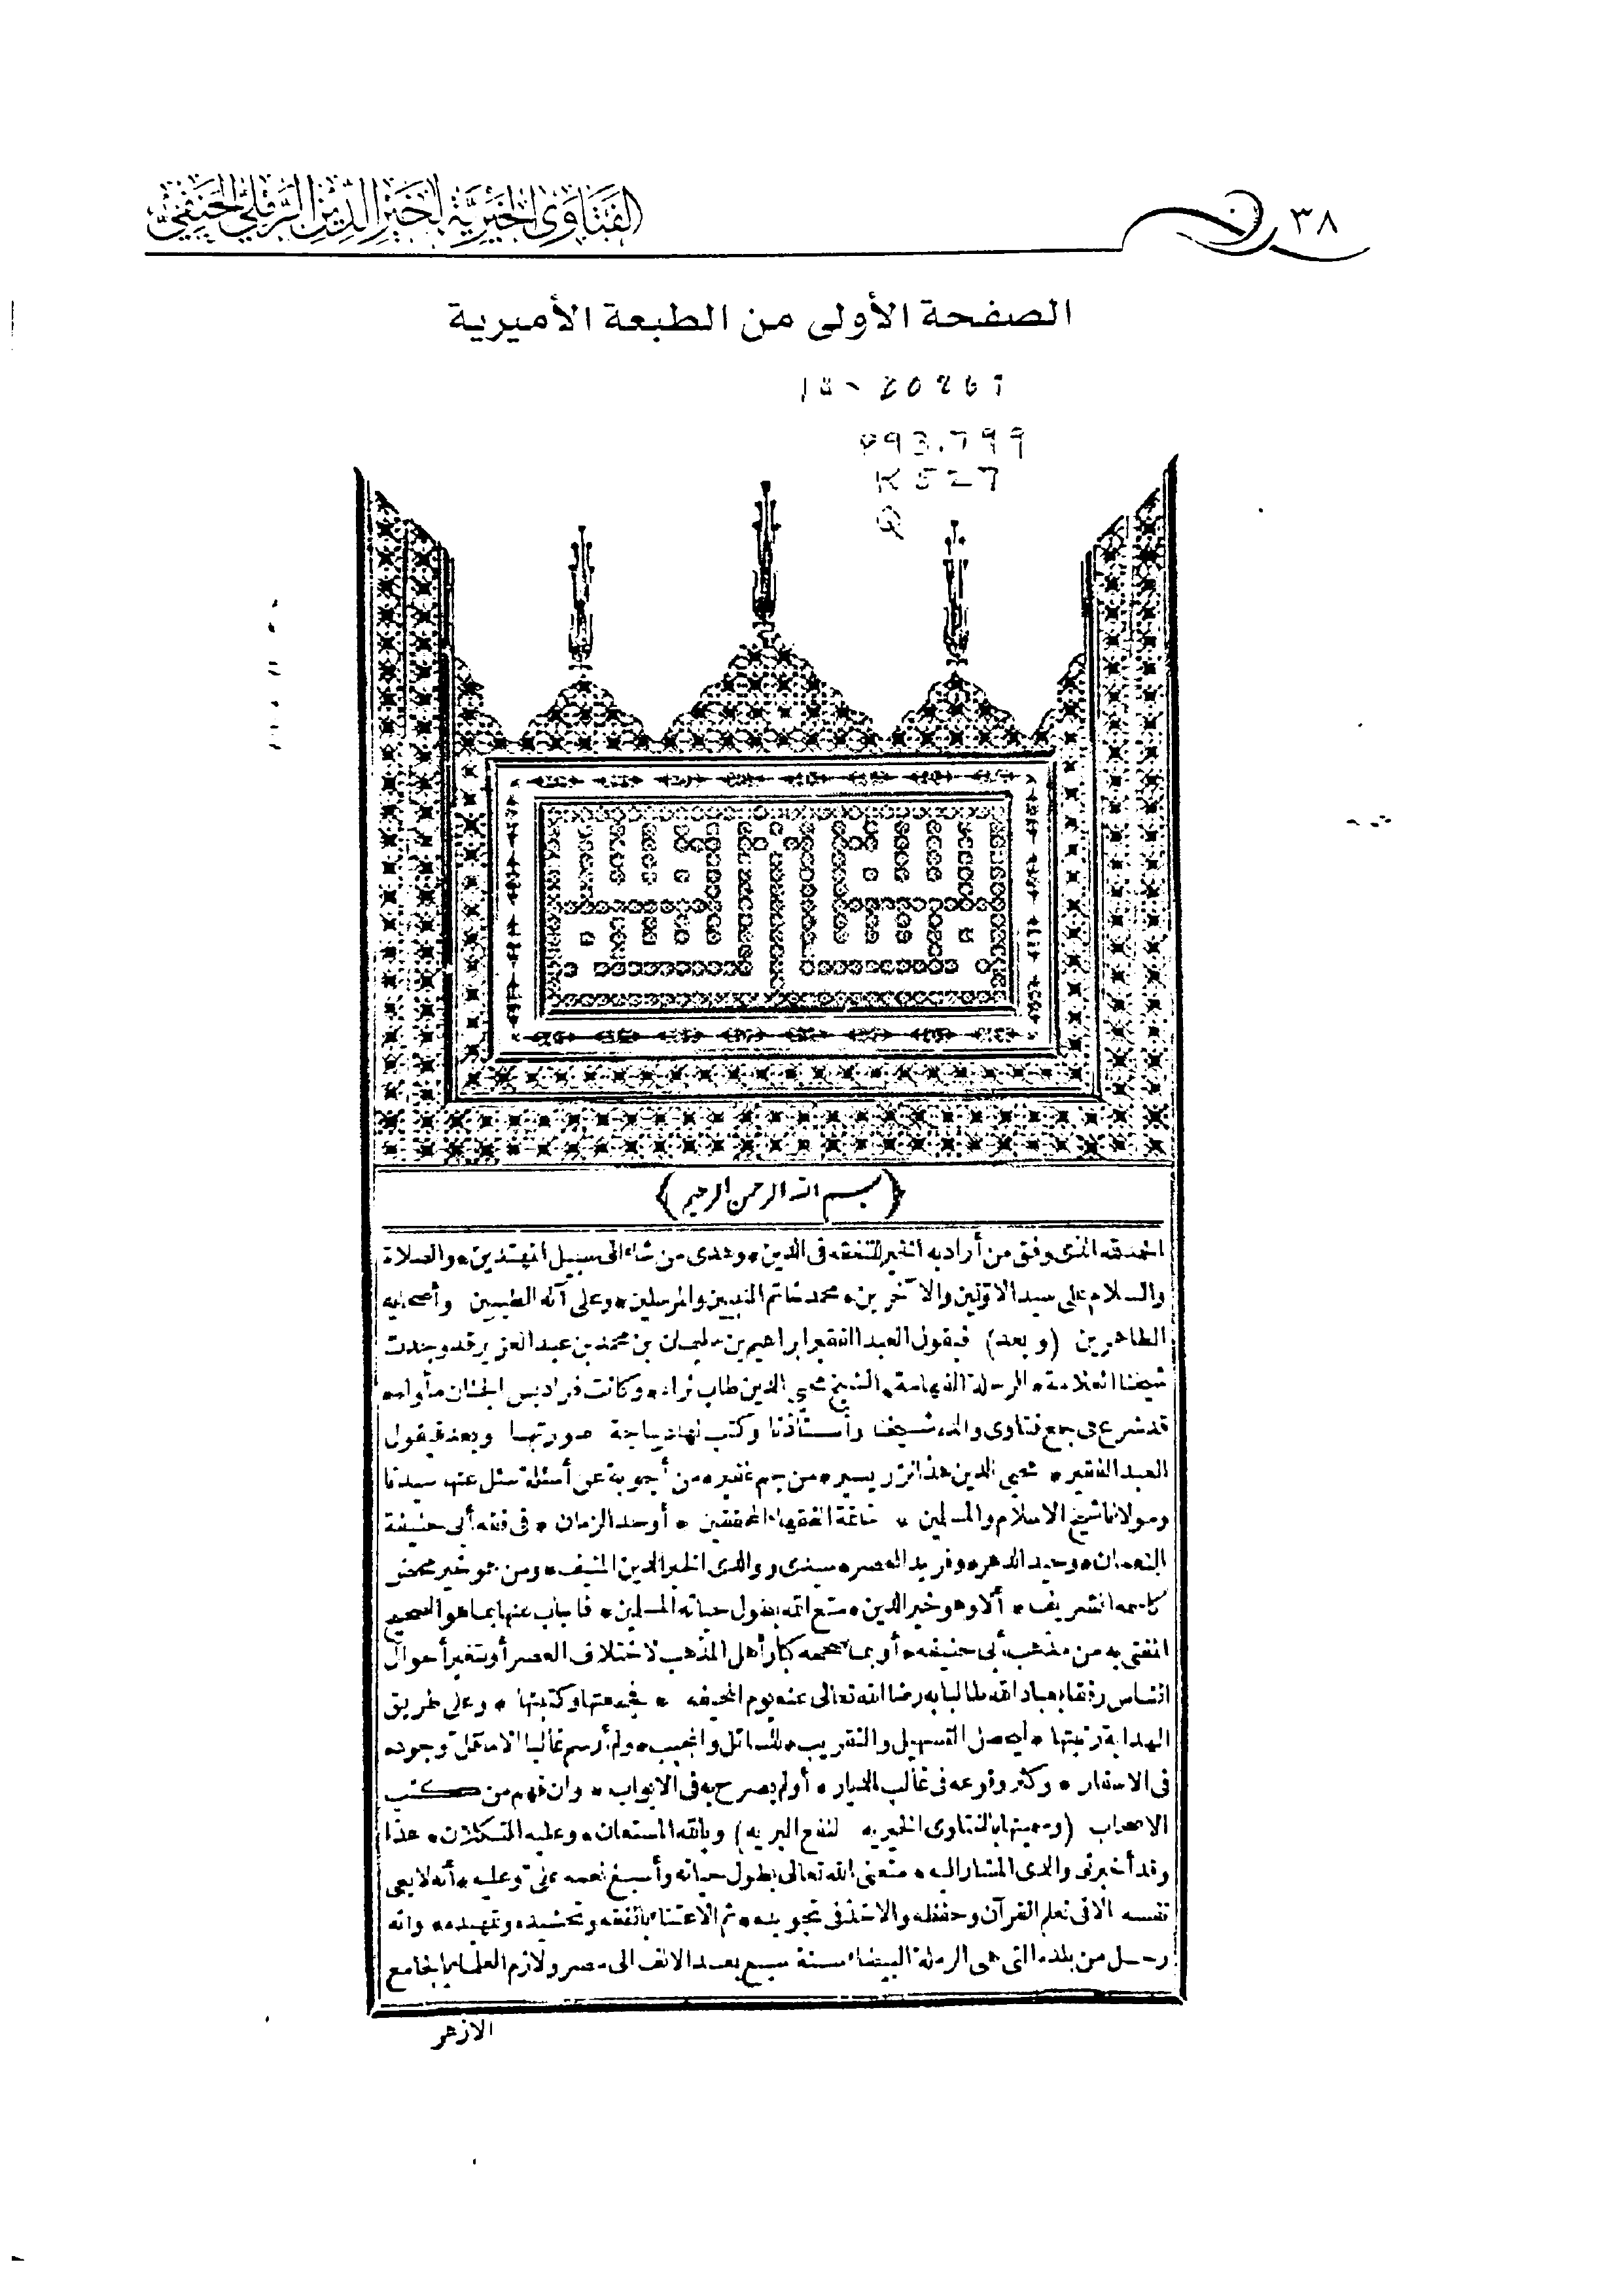 ٣٨
الفتاوى الخيرية لخير الدين الرملي الحنفي
الصفحة الأولى من الطبعة الأميرية
893.799
K527
Q
﴿بسم الله الرحمن الرحيم﴾
الحمد لله الذى وفق من أراد به الخير للتفقه فى الدين * وهدى من شاء الى سبيل المهتدين * والصلاة
والسلام على سيد الاولين والآخرين * محمد خاتم النبيين والمرسلين * وعلى آله الطيبين وأصحابه
الطاهرين (وبعد) فيقول العبد الفقير ابراهيم بن سليمان بن محمد بن عبد العزيز قد وجدت
شيخنا العلامة * الرحلة الفهامة * الشيخ محيي الدين طاب ثراه * وكانت فراديس الجنان مأواه *
قد شرع فى جمع فتاوى والده شيخنا وأستاذنا وكتب لها ديباجة صورتها وبعد فيقول
العبد الفقير * محيي الدين هذا نزر يسير * من جم غفير * من أجوبة عن أسئلة سئل عنها سيدنا
ومولانا شيخ الاسلام والمسلمين * خاتمة الفقهاء المحققين * أوحد الزمان * فى فقه أبى حنيفة
النعمان * وحيد الدهر * وفريد العصر * سيدى ووالدى الخير الدين المنيف * ومن هو خير محض
كاسمه الشريف * ألا وهو خير الدين * متع الله بطول حياته المسلمين * فأجاب عنها بما هو الصحيح
المفتى به من مذهب أبى حنيفه * أو بما صححه كبار أهل المذهب لاختلاف العصر أو تغير أحوال
الناس رفقا بعباد الله طالبا به رضا الله تعالى عنه يوم الخيفه * فجمعتها وكتبتها * وعلى طريق
الهداية رتبتها * ليحصل التسهيل والتقريب * للسائل والمجيب * ولم أرسم غالبا الا ما قل وجوده
فى الاسفار * وكثر وقوعه فى غالب الديار * أو لم يصرح به فى الابواب * وان فهم من كتب
الاصحاب (وسميتها بالفتاوى الخيريه لنفع البريه) وبالله المستعان * وعليه التكلان * هذا
وقد أخبرنى والدى المشار اليه * متعنى الله تعالى بطول حياته وأسبغ نعمه علىّ وعليه * أنه لا يعى
نفسه الا فى تعلم القرآن وحفظه والاخذ فى تجويده * ثم الاعتناء بالفقه وتحشيده وتمهيده * وانه
رحل من بلده التى هى الرملة البيضاء سنة سبع بعد الالف الى مصر ولازم العلماء بالجامع
الازهر